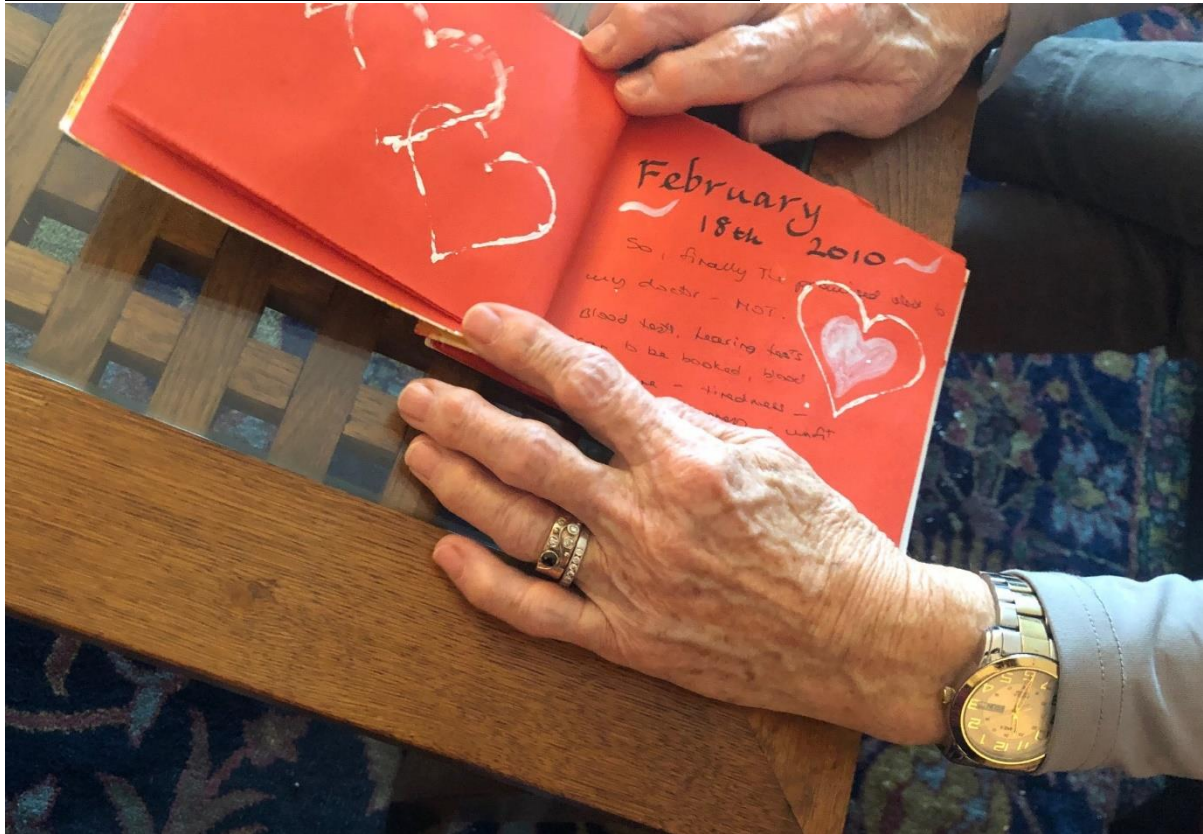 February
18th 2010
So, finally The promised visit to
my doctor - NOT.
Blood test, hearing tests
to be booked, blood
- tiredness -
- unfit